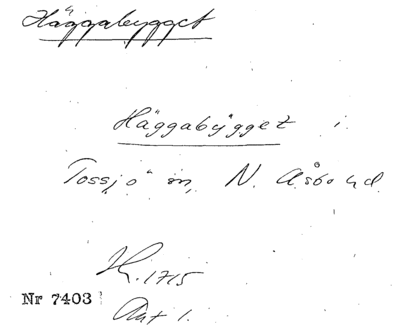 Häggabygget
Häggabygget i
Tossjö sn, N. Åsbo hd.
Hr. 1715
Nr 7403
Ant 1.